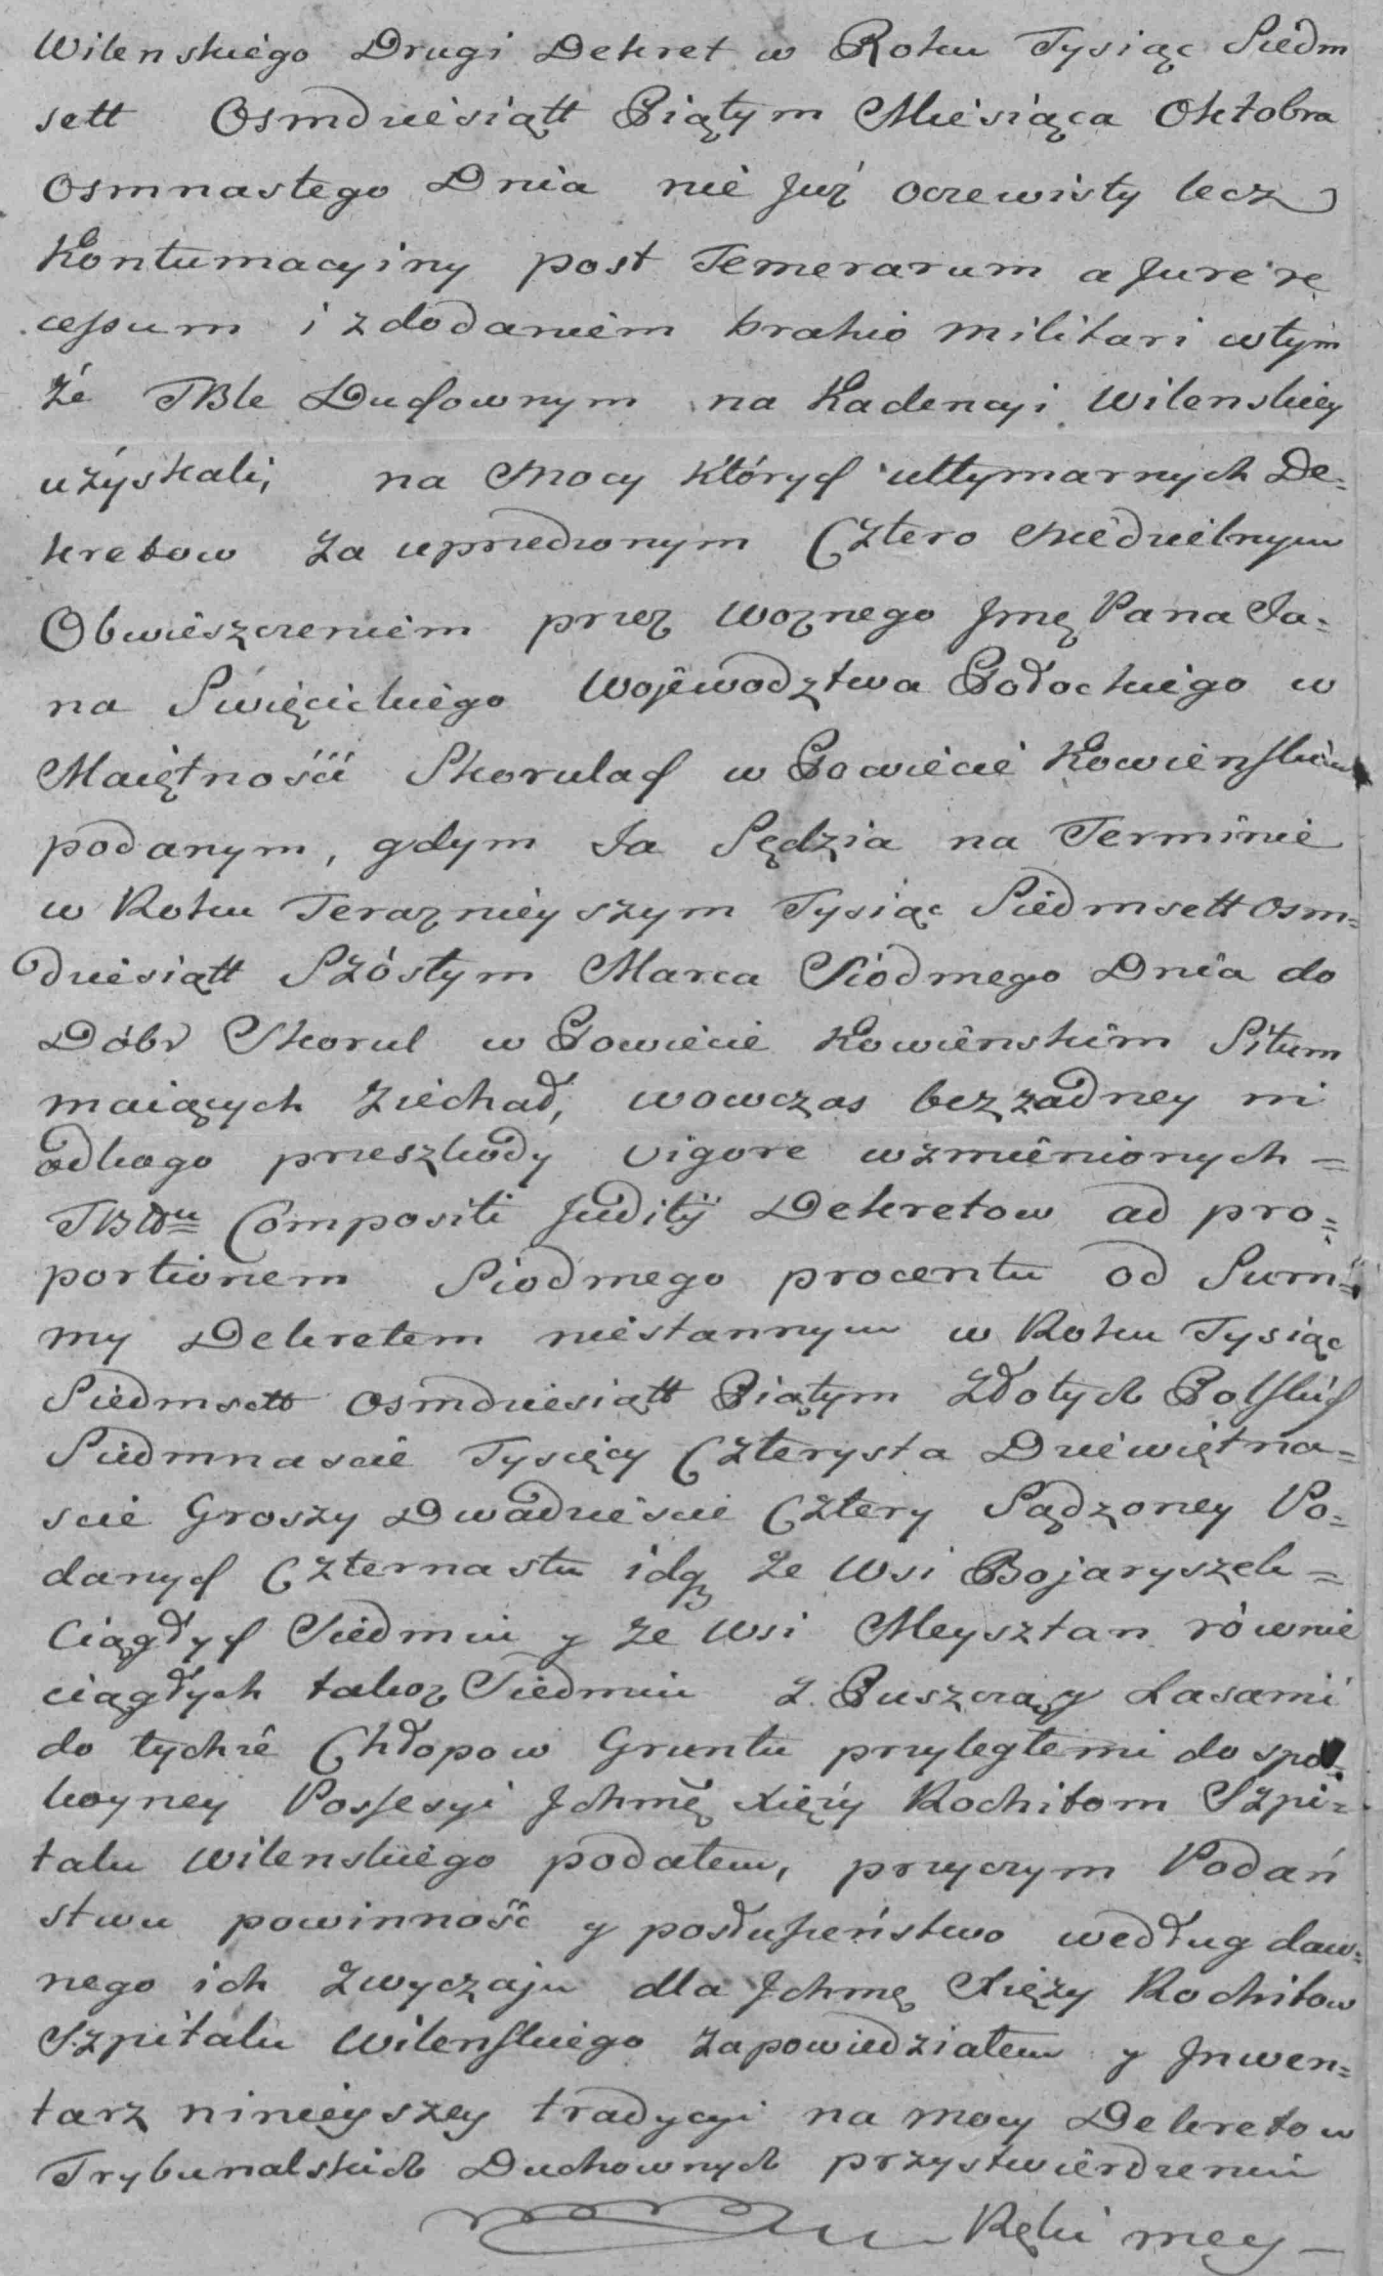 Wilenskiego Drugi Dekret w Roku Tysiąc Siedm
sett Osmdziesiątt Piątym Miesiąca Oktobra
Osmnastego Dnia nie Już oczewisty lecz
Kontumacyiny post Temerarum a Jure re
cessum i z dodaniem brahio militari w tym
że TBle Duchownym na Kadencyi Wilenskiey
użyskali, na Mocy których ultymarnych De=
kretow za uprzedzonym Cztero Niedzielnym
Obwieszczeniem przez Woznego Jmę Pana Ja=
na Swięcickiego Wojewodztwa Połockiego w
Maiętności Skorulach w Powiecie Kowienskim
podanym, gdym Ja Sędzia na Terminie
w Roku Terazniey szym Tysiąc Siedmsett Osm=
dziesiątt Szóstym Marca Siódmego Dnia do
Dóbr Skorul w Powiecie Kowienskim Situm
maiących Ziechał, wowczas bez żadney mi
odkogo przeszkody vigore wzmienionych =
TBłłu Compositi Juditÿ Dekretow ad pro=
portionem Siodmego procentu od Sum=
my Dekretem niestannym w Roku Tysiąc
Siedmsett osmdziesiątt Piątym Złotych Polskich
Siedmnascie Tysięcy Czterysta Dziewiętna=
scie Groszy Dwadziescie Cztery Sądzoney Po=
danych Czternastu idq ze Wsi Bojaryszek =
Ciągłych Siedmiu y ze Wsi Meysztan równie
ciągłych takoż Siedmiu z Puszczą y Lasami
do tychże Chłopow Gruntu przyległemi do spo=
koyney Possesyi Jchmę Xięży Rochitom Szpi=
talu Wilenskiego podałem, przyczym Podań
stwu powinność y posłuszeństwo według daw=
nego ich Zwyczaju dla Jchmę Xięży Rochitow
Szpitalu Wilenskiego zapowiedziałem y Jnwen=
tarz ninieyszey tradycyi na mocy Dekretow
Trybunalskich Duchownych przystwierdzeniu
Ręki mey